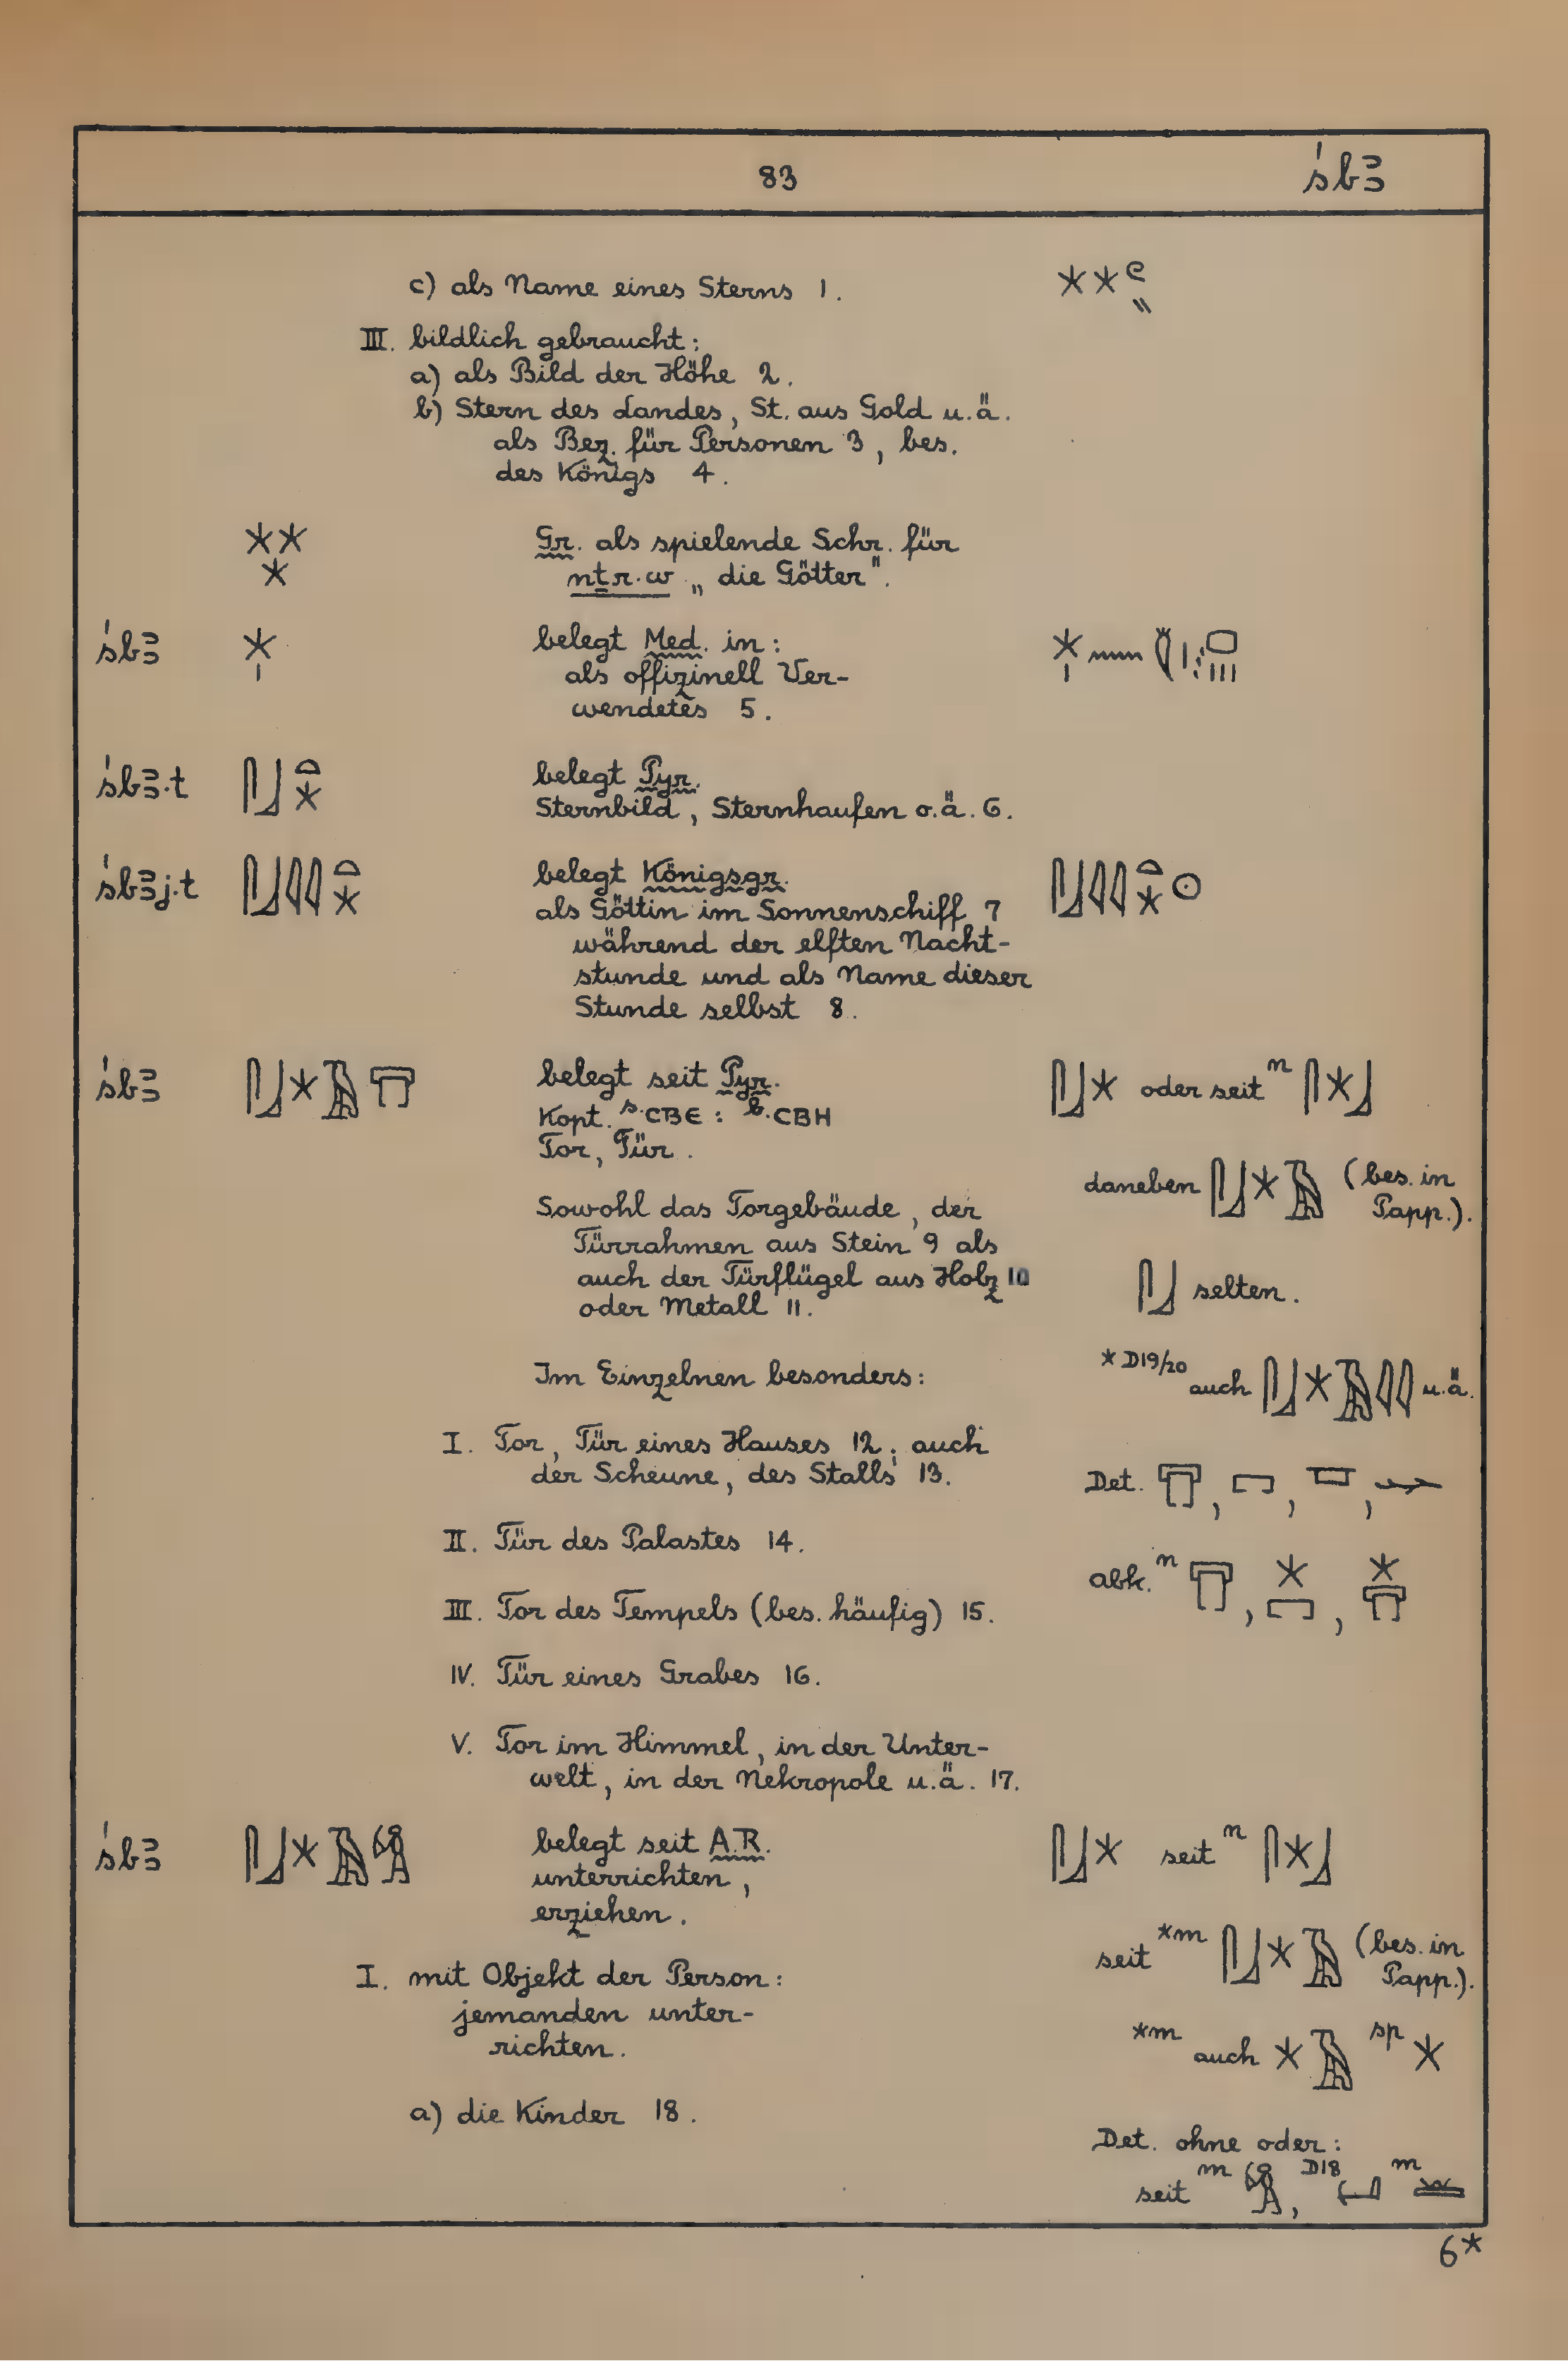 83
śbꜣ
c) als Name eines Sterns 1.
III. bildlich gebraucht:
a) als Bild der Höhe 2.
b) Stern des Landes, St. aus Gold u.ä.
als Bez. für Personen 3, bes.
des Königs 4.
Gr. als spielende Schr. für
nṯr.w „die Götter".
śbꜣ
belegt Med. in:
als offizinell Ver-
wendetes 5.
śbꜣ.t
belegt Pyr.
Sternbild, Sternhaufen o.ä. 6.
śbꜣj.t
belegt Königsgr.
als Göttin im Sonnenschiff 7
während der elften Nacht-
stunde und als Name dieser
Stunde selbst 8.
śbꜣ
belegt seit Pyr.
Kopt. s. ⲥⲃⲉ : b. ⲥⲃⲏ
Tor, Tür.
Sowohl das Torgebäude, der
Türrahmen aus Stein 9 als
auch der Türflügel aus Holz 10
oder Metall 11.
Im Einzelnen besonders:
I. Tor, Tür eines Hauses 12; auch
der Scheune, des Stalls 13.
II. Tür des Palastes 14.
III. Tor des Tempels (bes. häufig) 15.
IV. Tür eines Grabes 16.
V. Tor im Himmel, in der Unter-
welt, in der Nekropole u.ä. 17.
oder seit n
daneben (bes. in
Papp.).
selten.
* D19/20 auch u.ä.
Det. , , ,
abk. n , ,
śbꜣ
belegt seit A.R.
unterrichten,
erziehen.
I. mit Objekt der Person:
jemanden unter-
richten.
a) die Kinder 18.
seit n
seit *m (bes. in
Papp.).
*m auch sp
Det. ohne oder:
seit m , D18 m
6*